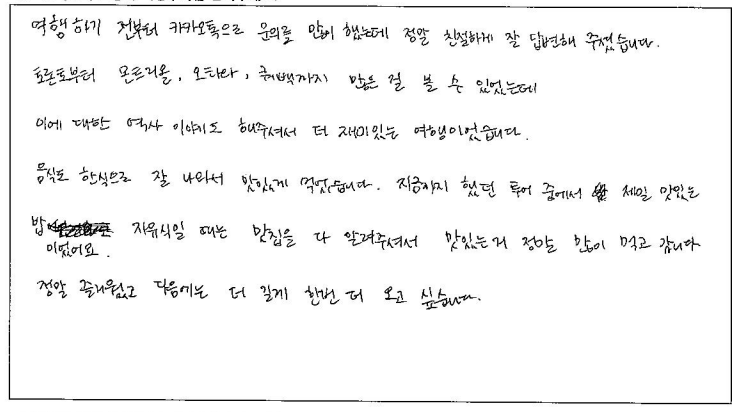 여행하기 전부터 카카오톡으로 문의를 많이 했는데 정말 친절하게 잘 답변해 주셨습니다.
토론토부터 몬트리올, 오타와, 퀘백까지 많은 걸 볼 수 있었는데
이에 대한 역사 이야기도 해주셔서 더 재미있는 여행이었습니다.
음식도 한식으로 잘 나와서 맛있게 먹었습니다. 지금까지 했던 투어 중에서 제일 맛있는
밥이었어요. 자유식일 때는 맛집을 다 알려주셔서 맛있는거 정말 많이 먹고 갑니다
정말 즐거웠고 다음에는 더 길게 한번 더 오고 싶습니다.